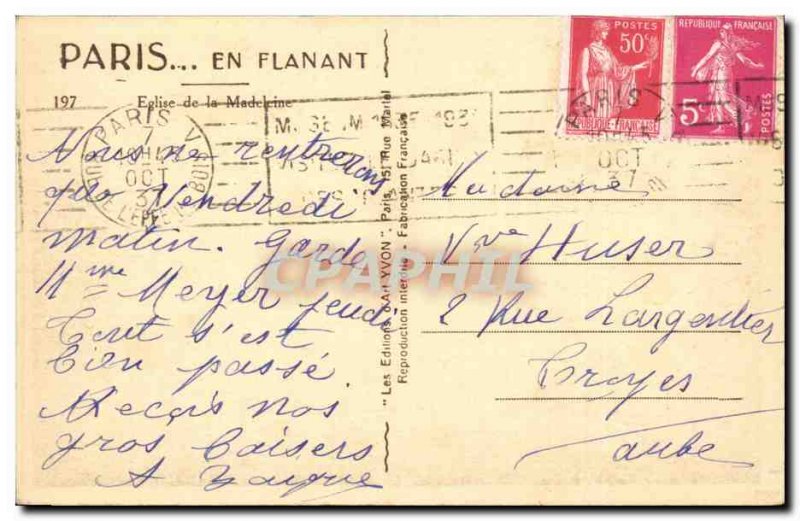 PARIS... EN FLANANT
197 Eglise de la Madeleine
Nous ne rentrerons
que Vendredi
matin. Garde
Mme Meyer jeudi
Tout s'est
bien passé
Reçois nos
gros baisers
A
"Les Editions d'Art YVON", Paris, 15, Rue Martel
Reproduction interdite - Fabrication Française
POSTES
50c
REPUBLIQUE-FRANÇAISE
REPUBLIQUE FRANÇAISE
5c
POSTES
PARIS V
7
OCT
37
PARIS
7
OCT
37
Madame
Vve Huser
2 Rue Largentier
Troyes
Aube
CPAPHIL